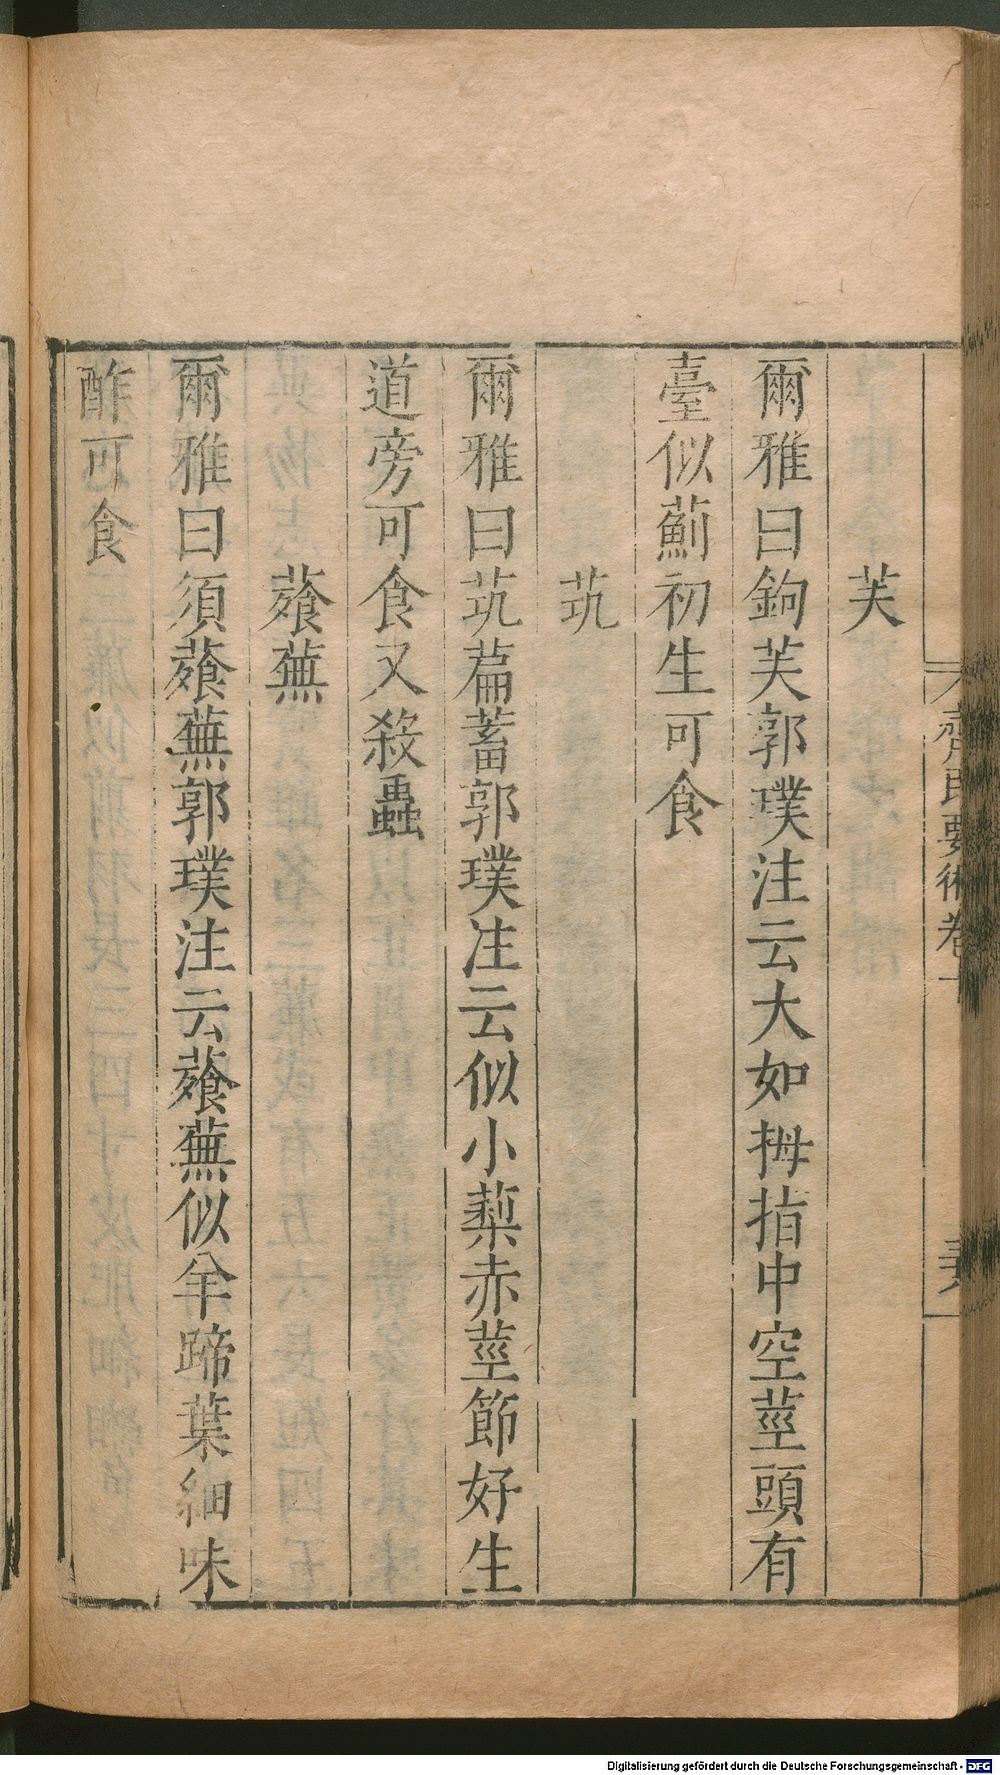 芺
爾雅曰鉤芺郭璞注云大如拇指中空莖頭有
臺似薊初生可食
茿
爾雅曰茿萹蓄郭璞注云似小蔾赤莖節好生
道旁可食又殺蟲
蕵蕪
爾雅曰須蕵蕪郭璞注云蕵蕪似羊蹄葉細味
酢可食
齊民要術卷十
Digitalisierung gefördert durch die Deutsche Forschungsgemeinschaft - DFG